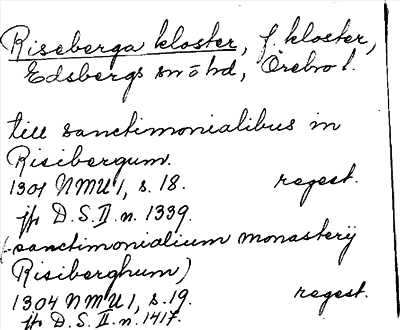 Riseberga kloster, f. kloster,
Edsbergs sn o hd, Örebro l.
till sanctimonialibus in
Risibergum.
1301 NMU 1, s. 18. regest.
jfr D.S. II. n. 1339.
(sanctimonialium monasterij
Risiberghum)
1304 NMU 1, s. 19. regest.
jfr D.S. II. n. 1417.